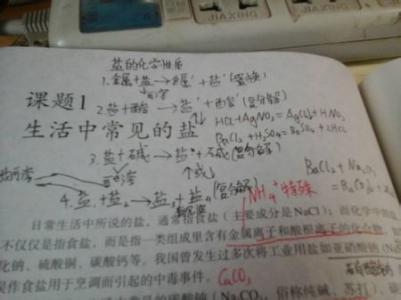 JIAXING
JIAXING
盐的化学性质
1.金属+盐→金属'+盐'(置换)
课题1
2.盐+酸→盐'+酸'(复分解)
HCl+AgNO₃=AgCl↓+HNO₃
生活中常见的盐
BaCl₂+H₂SO₄=BaSO₄↓+2HCl
3.盐+碱→盐'+碱'(复分解)
BaCl₂+Na₂
4.盐₁+盐₂→盐₃+盐₄(复分解)
NH₄⁺特殊
日常生活中所说的盐,通常指食盐(主要成分是NaCl);而化学中的
不仅仅是指食盐,而是指一类组成里含有金属离子和酸根离子的化合物,如
化钠、硫酸铜、碳酸钙等。我国曾发生过多次将工业用盐如亚硝酸钠(N
误作食盐用于烹调而引起的中毒事件。
CaCO₃
俗称纯碱、苏打)、碳